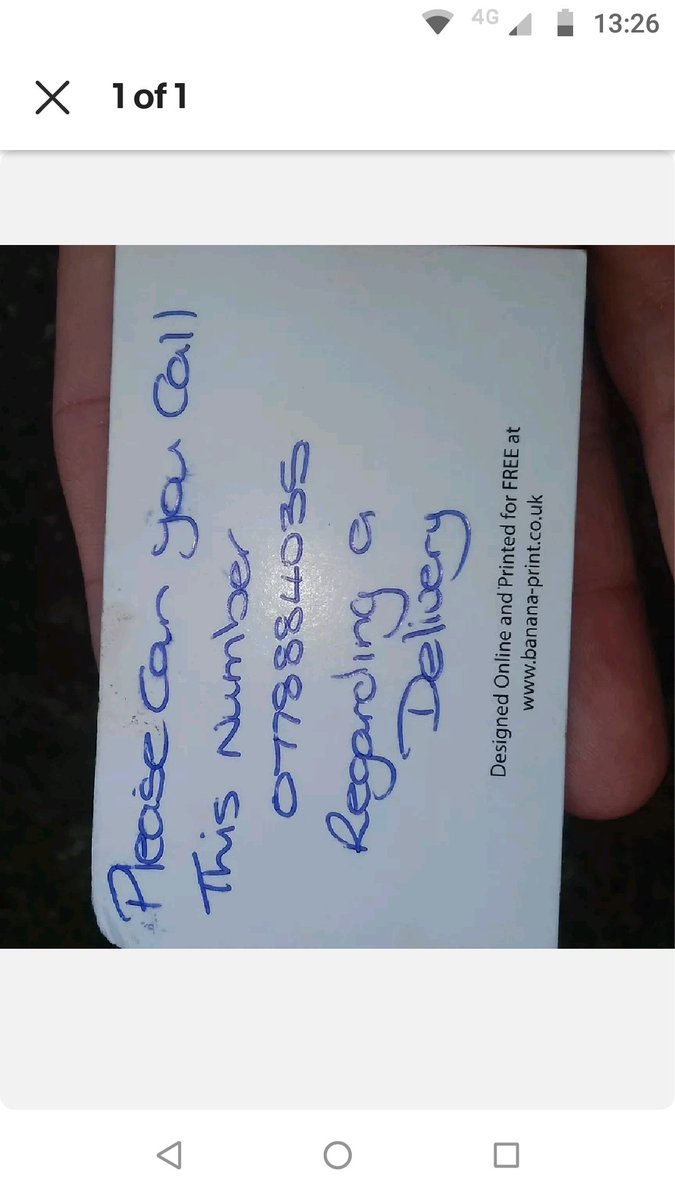 13:26
4G
1 of 1
Please Can you Call
This Number
0778884035
Regarding a
Delivery
Designed Online and Printed for FREE at
www.banana-print.co.uk